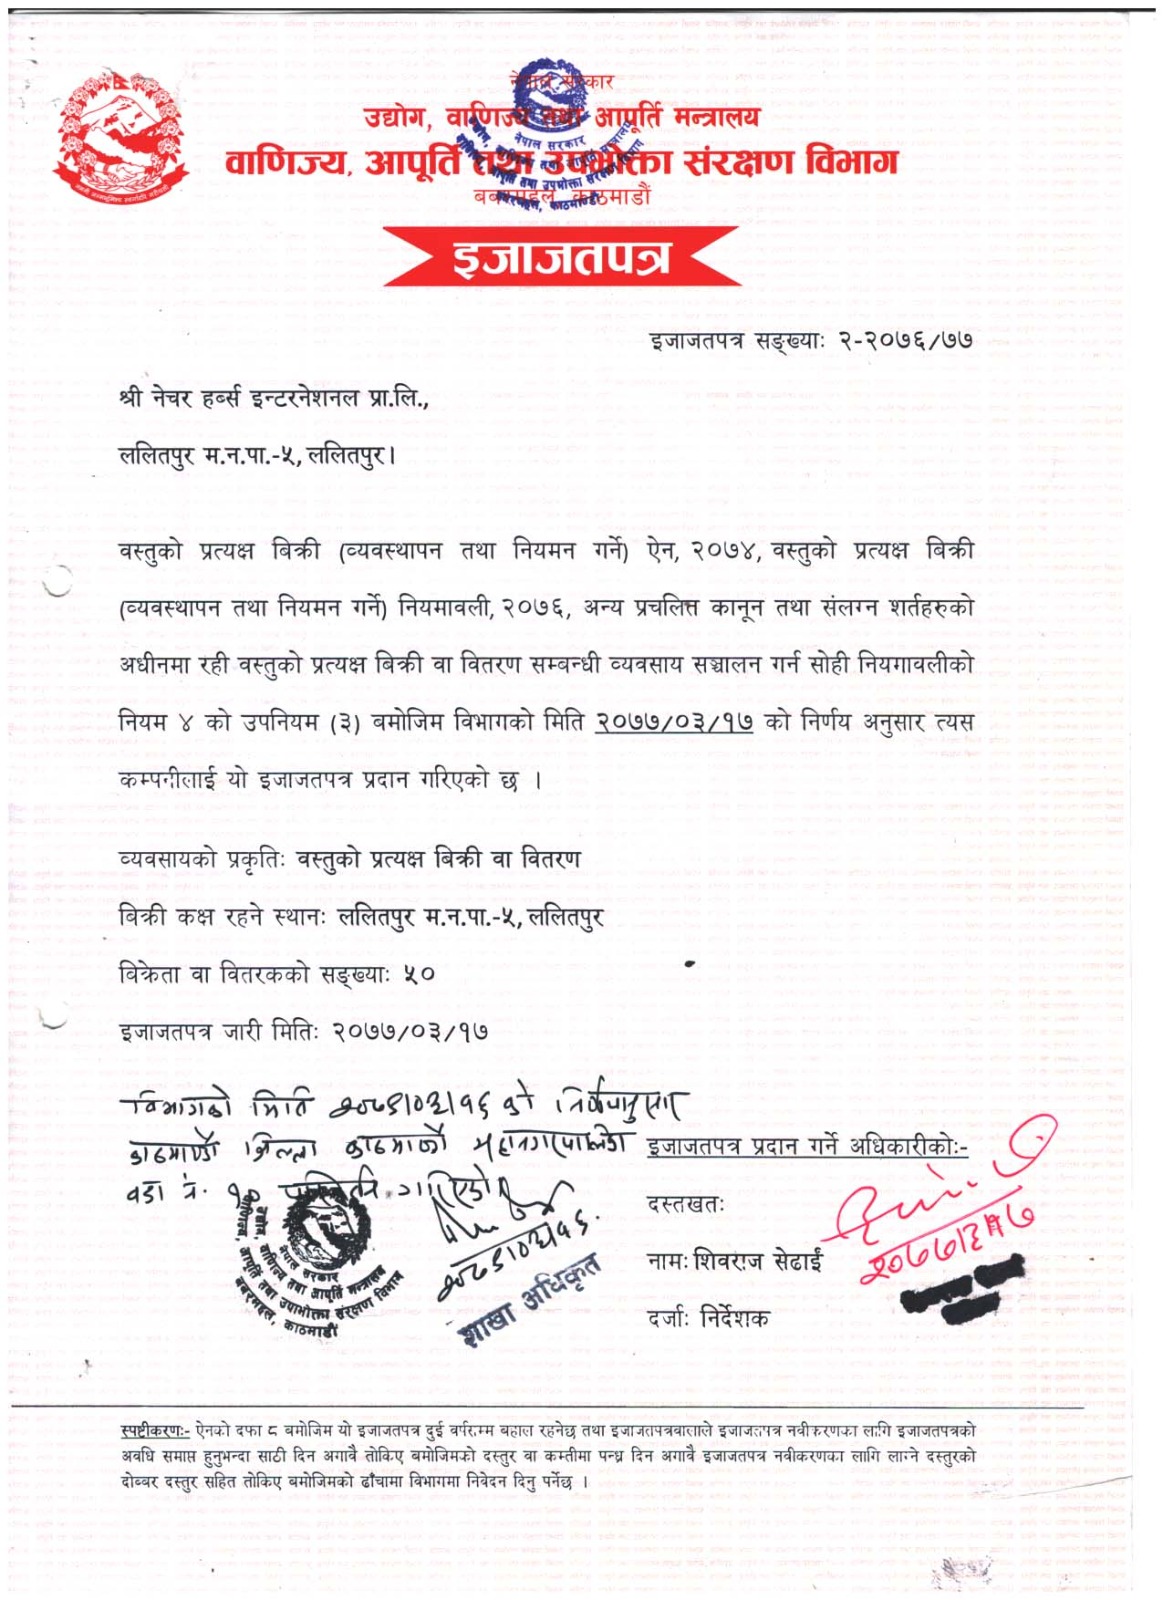 नेपाल सरकार
उद्योग, वाणिज्य तथा आपूर्ति मन्त्रालय
वाणिज्य, आपूर्ति तथा उपभोक्ता संरक्षण विभाग
बबरमहल, काठमाडौं
इजाजतपत्र
इजाजतपत्र सङ्ख्याः २-२०७६/७७
श्री नेचर हर्ब्स इन्टरनेशनल प्रा.लि.,
ललितपुर म.न.पा.-५, ललितपुर।
वस्तुको प्रत्यक्ष बिक्री (व्यवस्थापन तथा नियमन गर्ने) ऐन, २०७४, वस्तुको प्रत्यक्ष बिक्री
(व्यवस्थापन तथा नियमन गर्ने) नियमावली, २०७६, अन्य प्रचलित्त कानून तथा संलग्न शर्तहरुको
अधीनमा रही वस्तुको प्रत्यक्ष बिक्री वा वितरण सम्बन्धी व्यवसाय सञ्चालन गर्न सोही नियगावलीको
नियम ४ को उपनियम (३) बमोजिम विभागको मिति २०७७/०३/१७ को निर्णय अनुसार त्यस
कम्पनीलाई यो इजाजतपत्र प्रदान गरिएको छ ।
व्यवसायको प्रकृतिः वस्तुको प्रत्यक्ष बिक्री वा वितरण
बिक्री कक्ष रहने स्थानः ललितपुर म.न.पा.-५, ललितपुर
विक्रेता वा वितरकको सङ्ख्याः ५०
इजाजतपत्र जारी मितिः २०७७/०३/१७
विभागको मिति को निर्णयानुसार
काठमाण्डौ जिल्ला काठमाण्डौ महानगरपालिका
वडा नं. १०
इजाजतपत्र प्रदान गर्ने अधिकारीकोः-
दस्तखतः
नामः शिवराज सेढाईं
दर्जाः निर्देशक
नेपाल सरकार
उद्योग, वाणिज्य तथा आपूर्ति मन्त्रालय
वाणिज्य, आपूर्ति तथा उपभोक्ता संरक्षण विभाग
बबरमहल, काठमाडौं
शाखा अधिकृत
स्पष्टीकरणः- ऐनको दफा ८ बमोजिम यो इजाजतपत्र दुई वर्षसम्म बहाल रहनेछ तथा इजाजतपत्रवालाले इजाजतपत्र नवीकरणका लागि इजाजतपत्रको
अवधि समाप्त हुनुभन्दा साठी दिन अगावै तोकिए बमोजिमको दस्तुर वा कम्तीमा पन्ध्र दिन अगावै इजाजतपत्र नवीकरणका लागि लाग्ने दस्तुरको
दोब्बर दस्तुर सहित तोकिए बमोजिमको ढाँचामा विभागमा निवेदन दिनु पर्नेछ ।